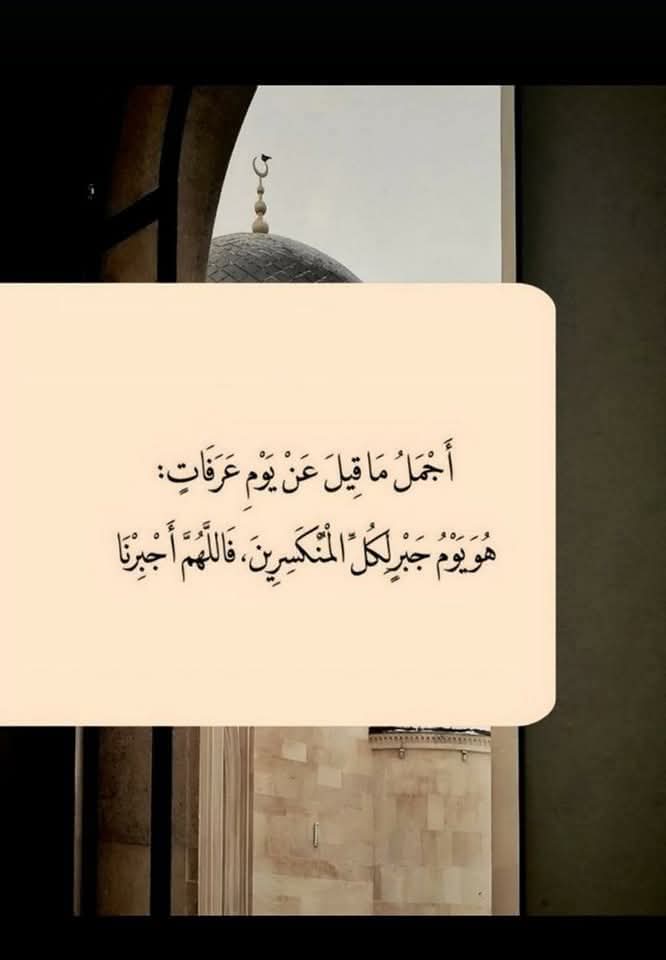 أَجْمَلُ مَا قِيلَ عَنْ يَوْمِ عَرَفَاتٍ:
هُوَ يَوْمُ جَبْرٍ لِكُلِّ الْمُنْكَسِرِينَ، فَاللَّهُمَّ أَجْبِرْنَا